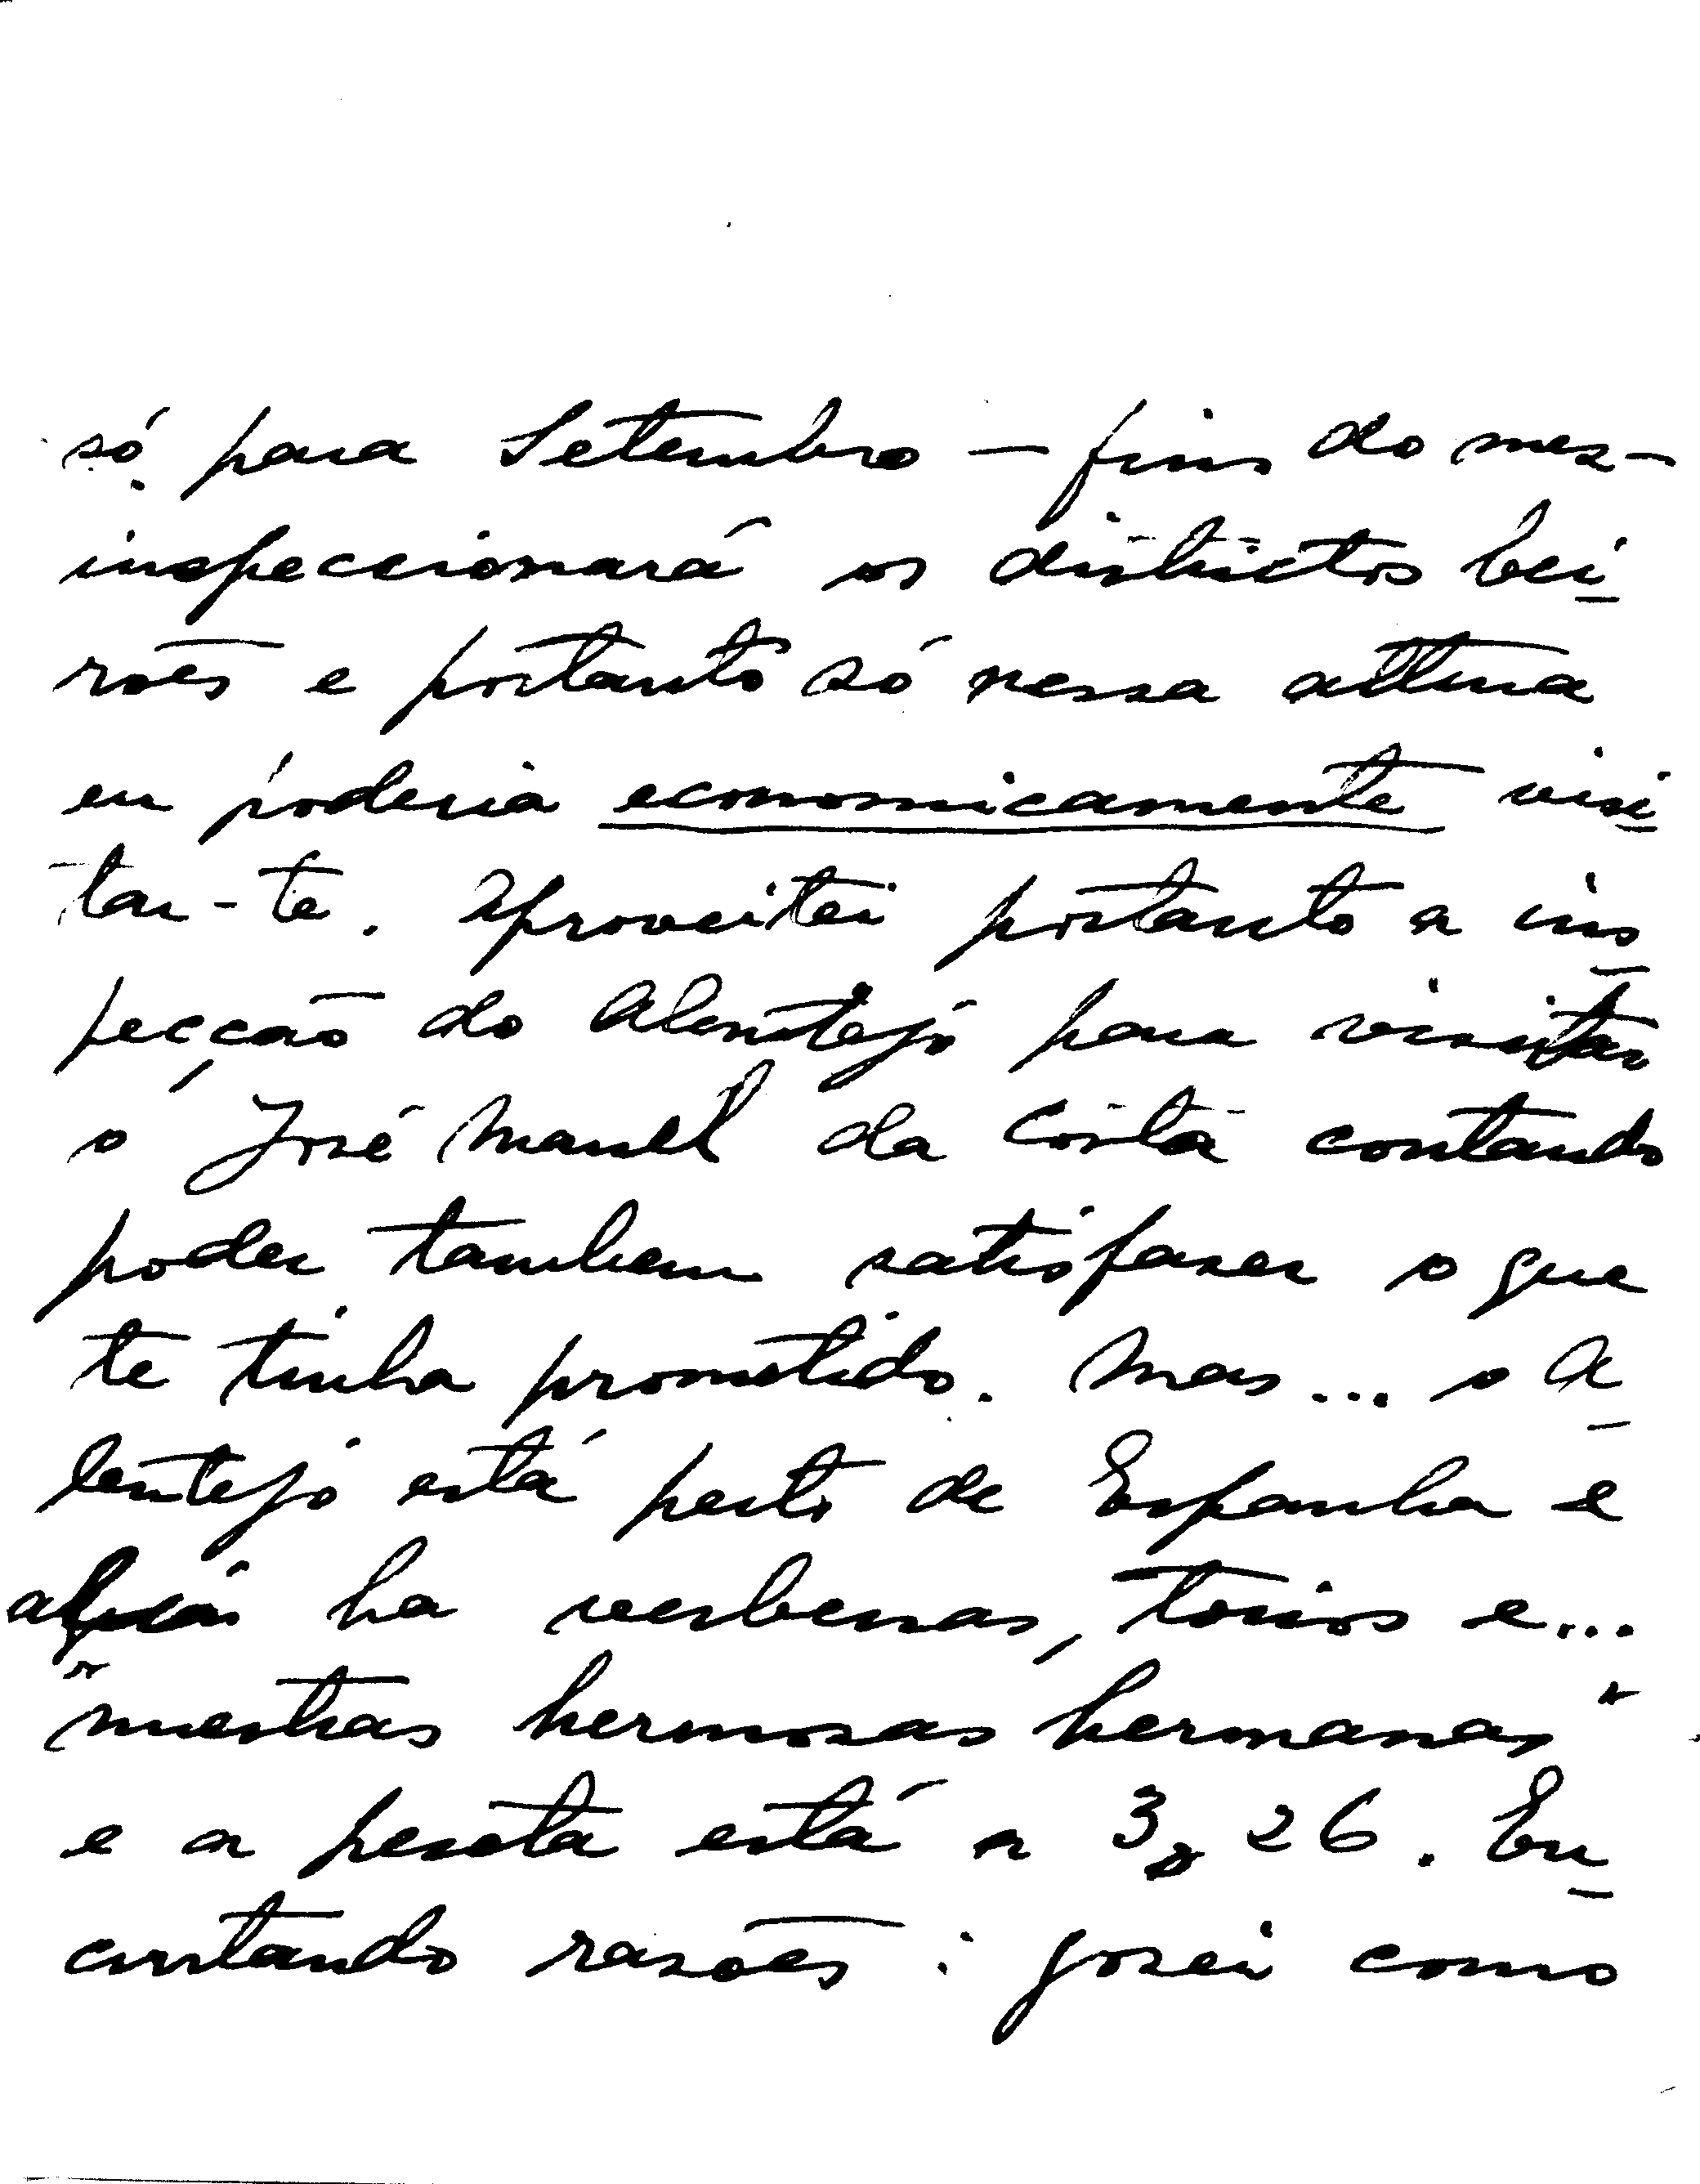 só para Setembro — fins do mez —
inspeccionará os districtos bei
rões e portanto só nessa altura
eu poderia economicamente visi
tar-te. Aproveitei portanto a ins
pecção do Alentejo para visitar
o José Manel da Costa contando
poder tambem satisfazer o que
te tinha prometido. Mas... o A
lentejo está perto de Espanha e
ha verbenas, toiros e...
"nuestras hermosas hermanas"
e a peseta está a 3$26. En
curtando razões: gozei como